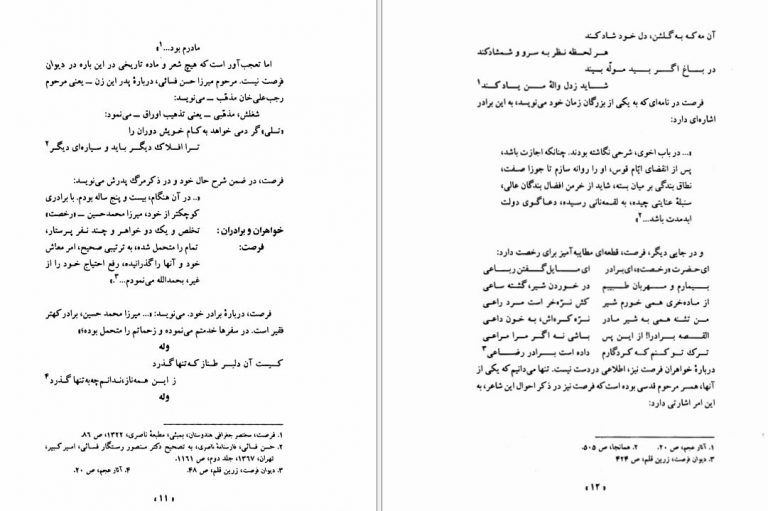 مادرم بود...۱»
اما تعجب‌آور است که هیچ شعر و ماده تاریخی در این باره در دیوان
فرصت نیست. مرحوم میرزا حسن فسائی، دربارهٔ پدر این زن ــ یعنی مرحوم
رجب‌علی‌خان مذهّب ــ می‌نویسد:
شغلش، مذهّبی ــ یعنی تذهیب اوراق ــ می‌نمود:
«تسلی» گر دمی خواهد به کام خویش دوران را
ترا افلاک دیگر باید و سیاره‌ای دیگر۲
فرصت، در ضمن شرح حال خود و در ذکر مرگ پدرش می‌نویسد:
«.. در آن هنگام، بیست و پنج ساله بودم. با برادری
کوچکتر از خود، میرزا محمدحسین ــ «رخصت»
خواهران و برادران : تخلص و یک دو خواهر و چند نفر پرستار،
فرصت: تمام را متحمل شده، به ترتیبی صحیح، امر معاش
خود و آنها را گذرانیده، رفع احتیاج خود را از
غیر، بحمدالله می‌نمودم...۳.»
فرصت، دربارهٔ برادر خود. می‌نویسد: «... میرزا محمد حسین، برادر کهتر
فقیر است. در سفرها خدمتم می‌نموده و زحماتم را متحمل بوده»
وله
کیست آن دلبر طناز که تنها گذرد
ز این همه ناز، ندانم چه به تنها گذرد۴
وله
۱. فرصت، مختصر جغرافی هندوستان، بمبئی، مطبعهٔ ناصری، ۱۳۲۲، ص ۸۶.
۲. حسن فسائی، فارسنامهٔ ناصری، به تصحیح دکتر منصور رستگار فسائی، امیرکبیر،
تهران، ۱۳۶۷، جلد دوم، ص ۱۱۶۱.
۳. دیوان فرصت، زرین قلم، ص ۴۸. ۴. آثار عجم، ص ۲۰.
« ۱۱ »
آن مه که به گلشن، دل خود شاد کند
هر لحظه نظر به سرو و شمشاد کند
در باغ اگر بید مولّه بیند
شاید ز دل والهٔ من یاد کند۱
فرصت در نامه‌ای که به یکی از بزرگان زمان خود می‌نویسد، به این برادر
اشاره‌ای دارد:
«... در باب اخوی، شرحی نگاشته بودند. چنانکه اجازت باشد،
پس از انقضای ایّام قوس، او را روانه سازم تا جوزا صفت،
نطاق بندگی بر میان بسته، شاید از خرمن افضال بندگان عالی،
سنبلهٔ عنایتی چیده، به لقمه‌نانی رسیده، دعاگوی دولت
ابدمدت باشد...۲»
و در جایی دیگر، فرصت، قطعه‌ای مطایبه‌آمیز برای رخصت دارد:
ای حضرت «رخصت»، ای برادر ای مایل گفتن رباعی
بیمارم و مهربان طبیبم در خوردن شیر، گشته ساعی
از ماده‌خری همی خورم شیر کش نرّه‌خر است مرد راعی
من تشنه همی به شیر مادر نرّه کره‌اش، به خون داعی
القصه برادرا! از این پس باشی نه اگر مرا مراعی
ترک تو کنم که کردگارم داده است برادر رضاعی۳
دربارهٔ خواهران فرصت نیز، اطلاعی در دست نیست. تنها می‌دانیم که یکی از
آنها، همسر مرحوم قدسی بوده است که فرصت نیز در ذکر احوال این شاعر، به
این امر اشارتی دارد:
۱. آثار عجم، ص ۲۰. ۲. همانجا، ص ۵۰۵.
۳. دیوان فرصت، زرین قلم، ص ۴۲۴
« ۱۲ »